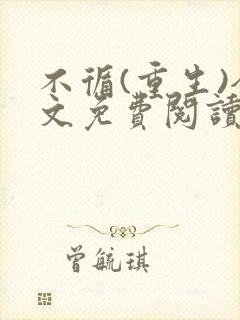 不循(重生)
文免費閱讀
曾毓琪